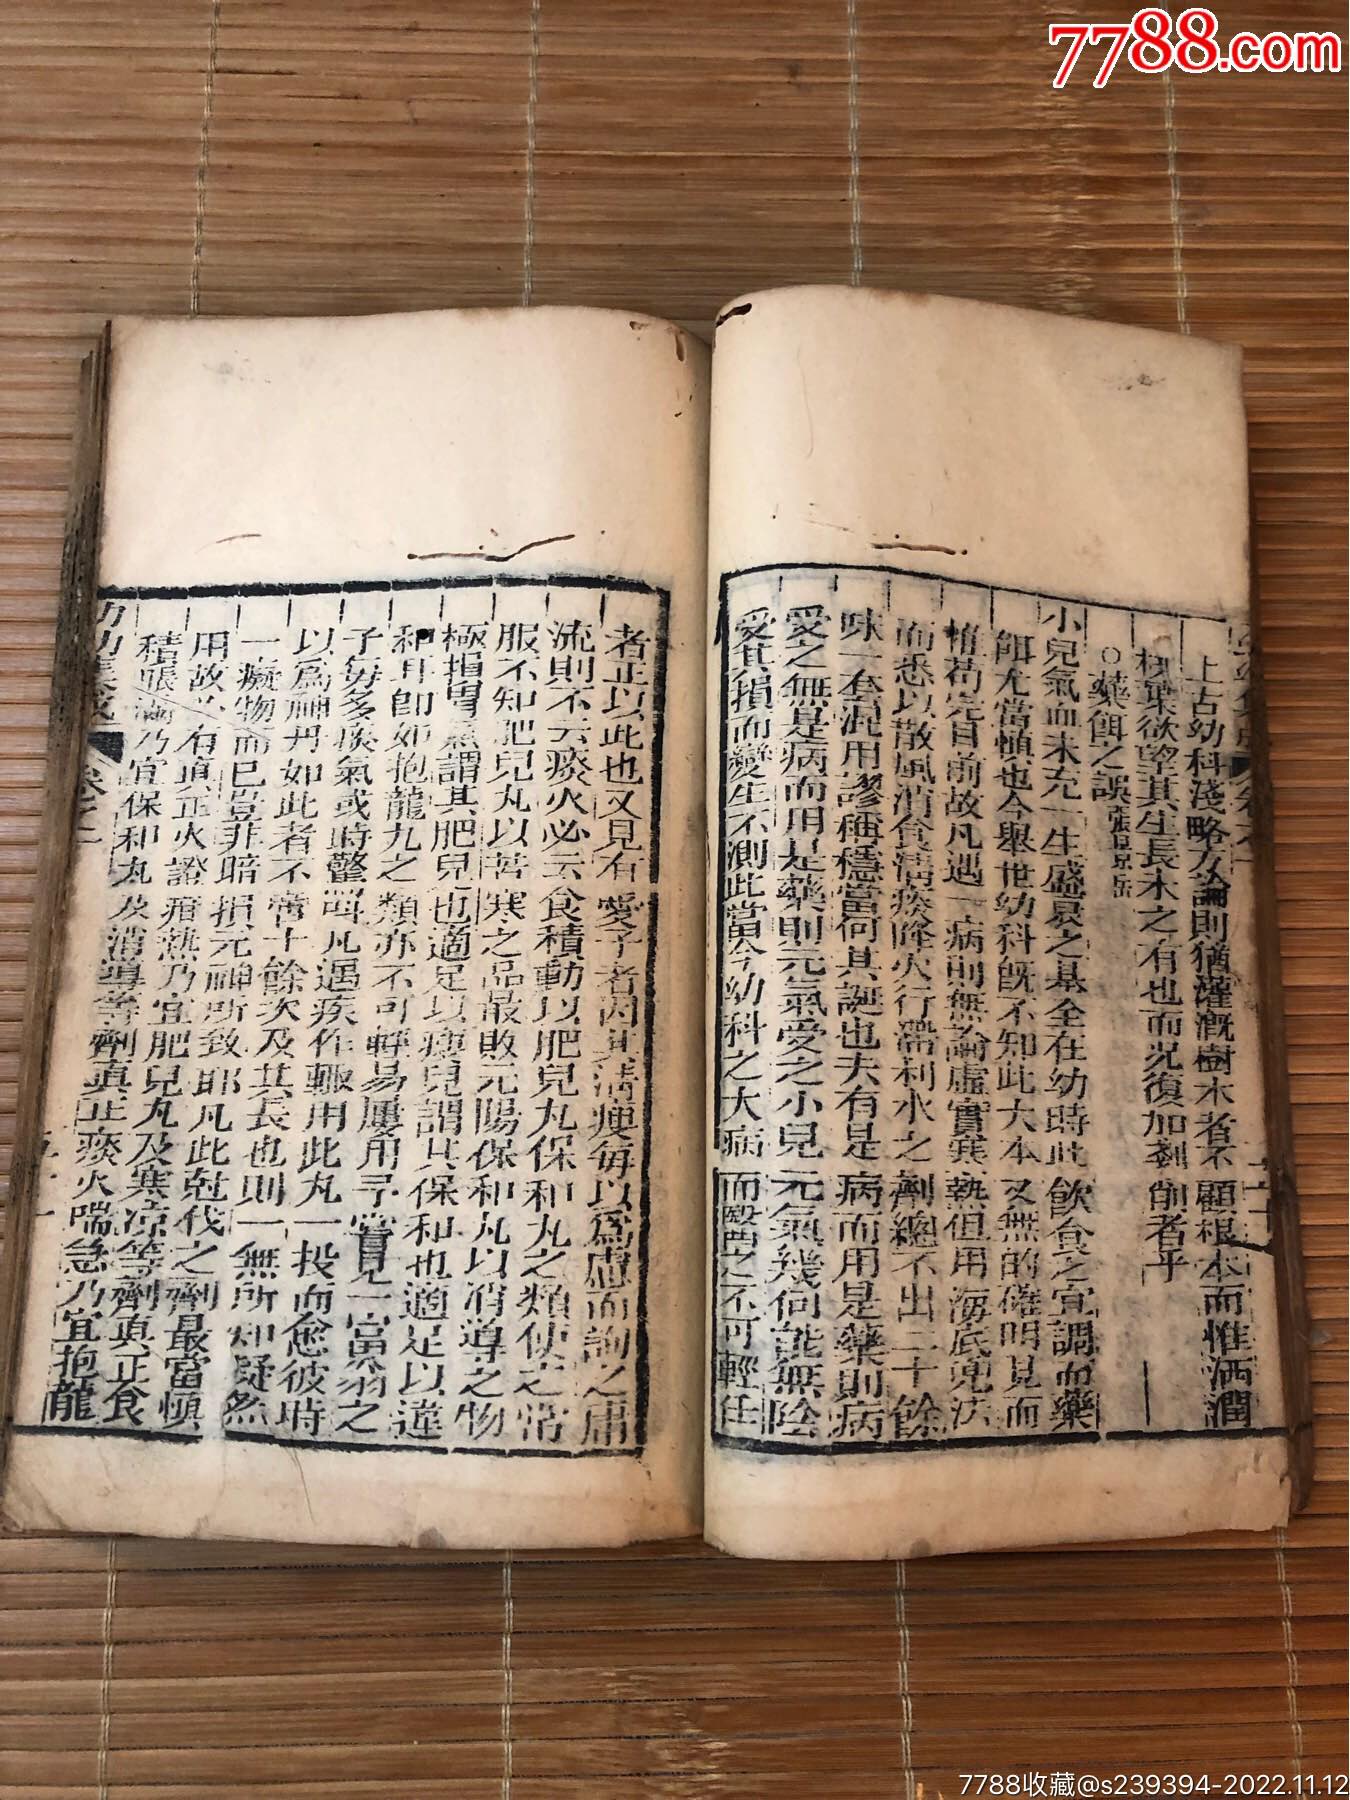 7788.com
上古幼科淺略方論則猶灌溉樹木者不顧根本而惟洒潤
枝葉欲望其生長木之有也而况復加剗削者乎
○藥餌之誤張景岳
小兒氣血未充一生盛衰之基全在幼時此飲食之宜調而藥
餌尤當慎也今舉世幼科旣不知此大本又無的確明見而
惟苟完目前故凡遇一病則無論虛實寒熱但用海底兜法
而悉以散風消食清痰降火行滯利水之劑總不出二十餘
味一套混用謬稱穩當何其誕也夫有是病而用是藥則病
受之無是病而用是藥則元氣受之小兒元氣幾何能無陰
受其損而變生不測此當今幼科之大病而醫之不可輕任
者正以此也又見有愛子者因其清瘦每以爲慮而詢之庸
流則不云痰火必云食積動以肥兒丸保和丸之類使之常
服不知肥兒丸以苦寒之品最敗元陽保和丸以消導之物
極損胃氣謂其肥兒也適足以瘦兒謂其保和也適足以違
和耳卽如抱龍丸之類亦不可輕易屢用予嘗見一富翁之
子每多痰氣或時驚叫凡遇疾作輙用此丸一投而愈彼時
以爲神丹如此者不啻十餘次及其長也則一無所知癡然
一癡物而已豈非暗損元神所致耶凡此尅伐之劑最當慎
用故必有眞正火證疳熱乃宜肥兒丸及寒凉等劑眞正食
積脹滿乃宜保和丸及消導等劑眞正痰火喘急乃宜抱龍
幼幼集成 卷之二
7788收藏@s239394-2022.11.12